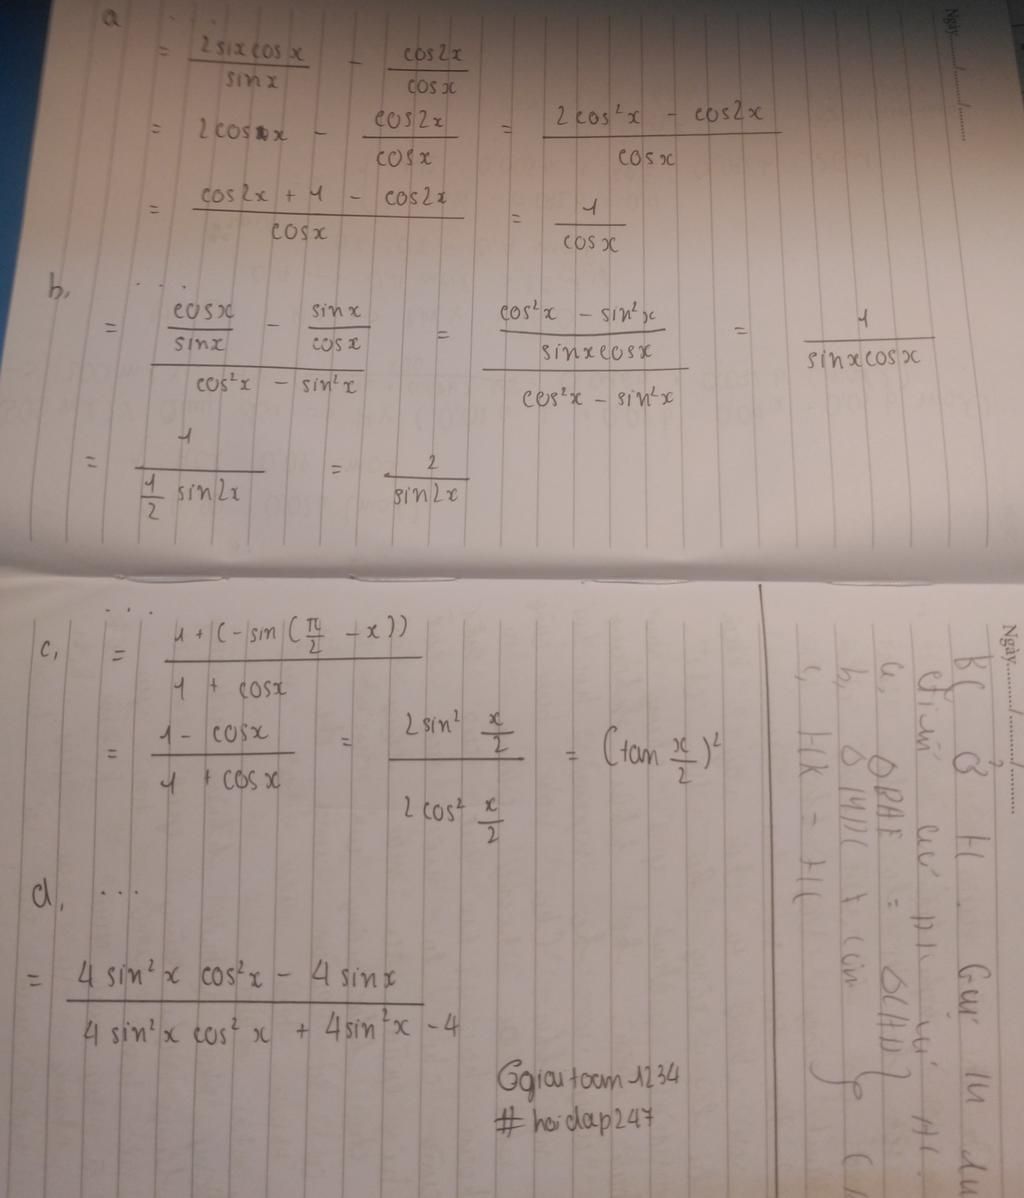 a ....
= 2sixcosx / sinx - cos2x / cosx
= 2cosx - cos2x / cosx = 2cos²x - cos2x / cosx
= cos2x + 1 - cos2x / cosx = 1 / cosx
b, ....
= (cosx / sinx - sinx / cosx) / (cos²x - sin²x) = (cos²x - sin²x / sinxcosx) / (cos²x - sin²x) = 1 / sinxcosx
= 1 / (1/2 sin2x) = 2 / sin2x
c, ...
= 1 + (-sin(π/2 - x)) / 1 + cosx
= 1 - cosx / 1 + cosx = 2sin² x/2 / 2cos² x/2 = (tan x/2)²
d, ...
= 4sin²x cos²x - 4sinx / 4sin²x cos²x + 4sin²x - 4
Ggiautoam1234
#hoidap247
Ngày......./......./.......
Ngày......./......./.......
b,
c, HK = HC